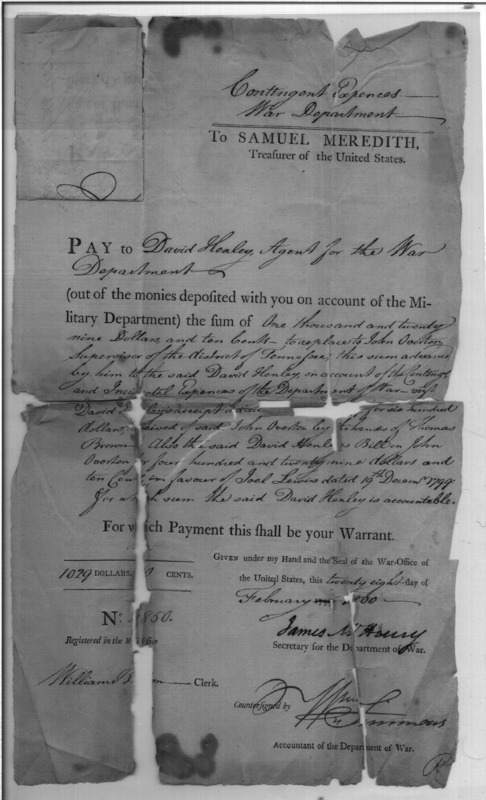 Contingent Expences
War Department
To SAMUEL MEREDITH,
Treasurer of the United States.
PAY to David Henley, Agent for the War
Department
(out of the monies deposited with you on account of the Mi-
litary Department) the sum of One thousand and twenty
nine Dollars, and ten Cents to replace to John Overton
Supervisor of the district of Tennessee; this sum advanced
by him to the said David Henley, on account of the
and Expences of the Department of War
David receipt for six hundred
dollars, received of said John Overton by hands of Thomas
Brown Also the said David Henley's Bill on John
Overton for four hundred and twenty nine dollars and
ten Cents in favour of Joel Lewis dated 19th Decemr. 1799
for which sum the said David Henley is accountable.
For which Payment this shall be your Warrant.
GIVEN under my Hand and the Seal of the War-Office of
1029 DOLLARS, CENTS.
the United States, this twenty eight day of
February
No. 850.
James McHenry
Registered in the War Office
Secretary for the Department of War.
William Clerk.
Countersigned by Wm Simmons
Accountant of the Department of War.